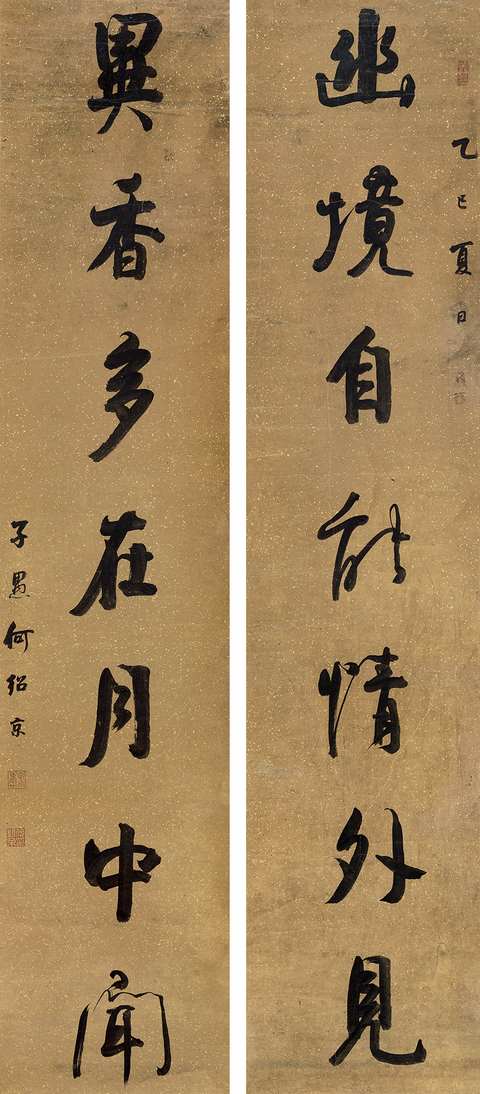 幽境自能情外見
乙巳夏日
異香多在月中聞
子愚何紹京